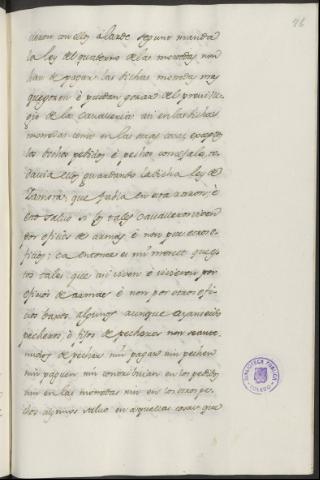 96
con ellos alarde segun manda
la ley del quaderno de las monedas non
han de pagar las dichas monedas mas
que gozen é puedan gozar del preville-
gio de la cavalleria asi en las dichas
monedas como en las otras cosas, excepto
los dichos pedidos é pechos concejales, to-
davia ellos guardando la dicha ley de
Zamora, que fabla en esta razon; é
esto salvo si los tales cavalleros viven
por oficios de armas é non por otros ofi-
ficios; ca entonces es mi merced que es-
tos tales que asi viven é vivieren por
oficios de armas é non por otros ofi-
cios baxos algunos aunque ayan seido
pecheros, é fijos de pecheros non sean te-
nudos de pechar nin pagar nin pechen
nin paguen nin contribuian en los pedidos
nin en las monedas nin en los otros pe-
chos algunos salvo en aquellas cosas que
BIBLIOTECA PUBLICA
TOLEDO